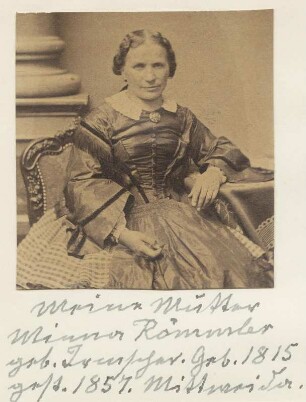 Meine Mutter
Minna Römmler
geb. Irmscher. Geb. 1815
gest. 1857. Mittweida.